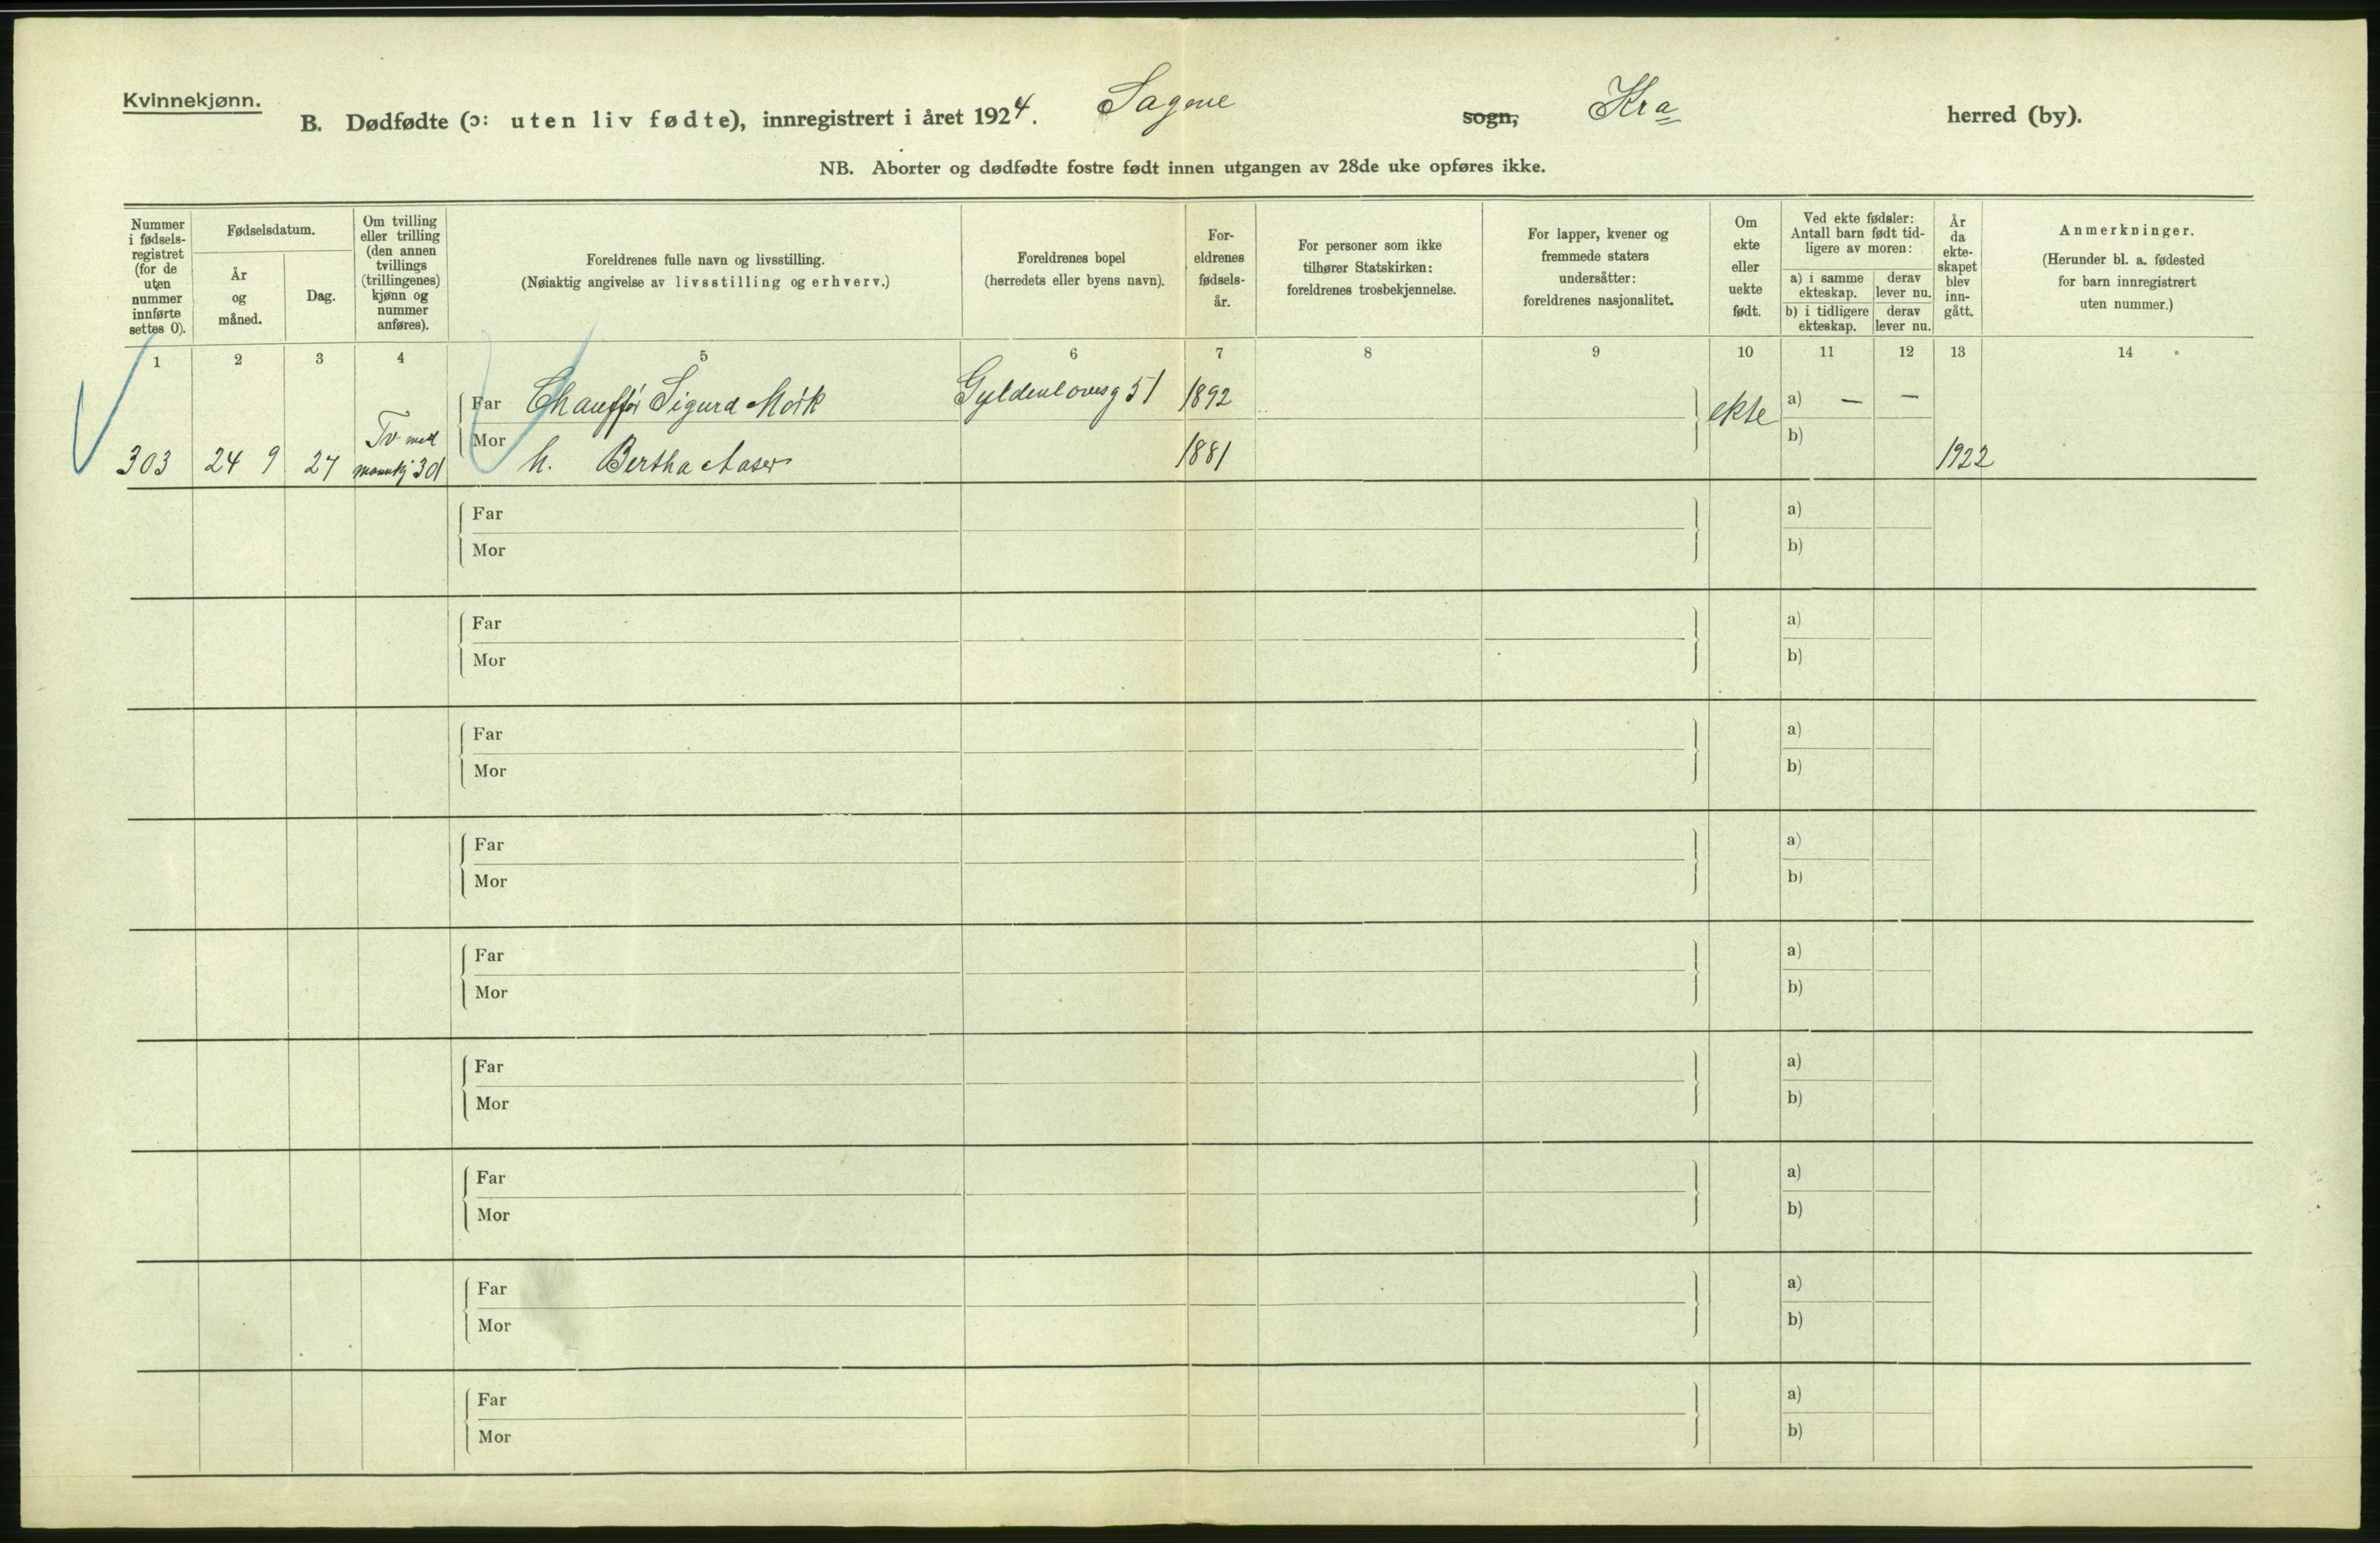 Kvinnekjønn.
B. Dødfødte (ɔ: uten liv fødte), innregistrert i året 1924. Sagene sogn, Kra herred (by).
NB. Aborter og dødfødte fostre født innen utgangen av 28de uke opføres ikke.
Nummer i fødsels-registret (for de uten nummer innførte settes 0).
Fødselsdatum.
År og måned.
Dag.
Om tvilling eller trilling (den annen tvillings (trillingenes) kjønn og nummer anføres).
Foreldrenes fulle navn og livsstilling.
(Nøiaktig angivelse av livsstilling og erhverv.)
Foreldrenes bopel
(herredets eller byens navn).
For-eldrenes fødsels-år.
For personer som ikke tilhører Statskirken: foreldrenes trosbekjennelse.
For lapper, kvener og fremmede staters undersåtter: foreldrenes nasjonalitet.
Om ekte eller uekte født.
Ved ekte fødsler: Antall barn født tid-ligere av moren:
a) i samme ekteskap.
derav lever nu.
b) i tidligere ekteskap.
derav lever nu.
År da ekte-skapet blev inn-gått.
Anmerkninger.
(Herunder bl. a. fødested for barn innregistrert uten nummer.)
1 2 3 4 5 6 7 8 9 10 11 12 13 14
Far Chauffør Sigurd Mørk Gyldenlovesg 51 1892 ekte a) — —
Tv med
Mor b)
303 24 9 27 mannkj 301 h. Bertha Aasen 1881 1922
Far a)
Mor b)
Far a)
Mor b)
Far a)
Mor b)
Far a)
Mor b)
Far a)
Mor b)
Far a)
Mor b)
Far a)
Mor b)
Far a)
Mor b)
Far a)
Mor b)